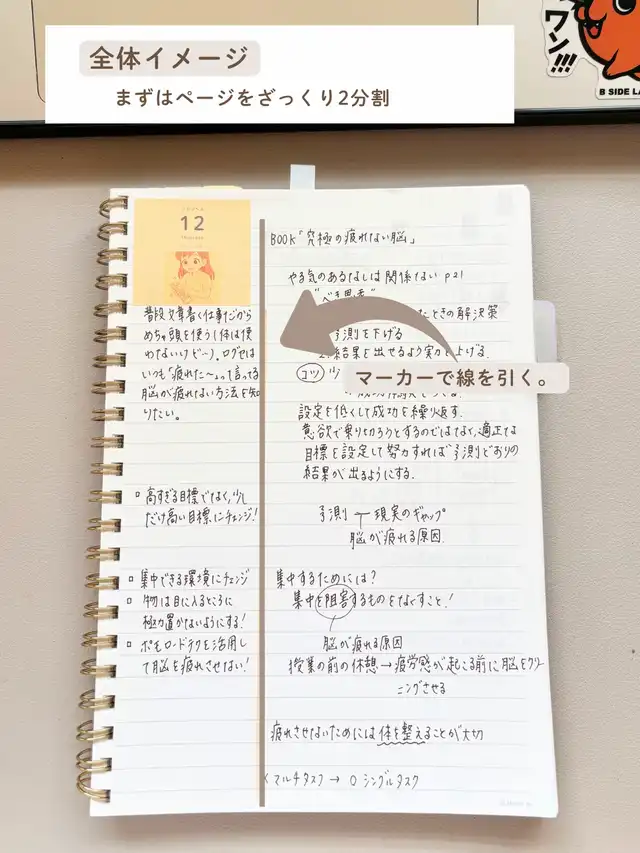 全体イメージ
まずはページをざっくり2分割
ワン!!!
B SIDE LA
12
普段文章書く仕事だから
めちゃ頭を使う(体は使
わないけど…)。ログセは
いつも「疲れた〜」って言ってる
脳が疲れない方法を知
りたい。
□ 高すぎる目標でなく、少し
だけ高い目標にチェンジ!
□ 集中できる環境にチェンジ
□ 物は目に入るところに
極力置かないようにする!
□ ポモロードテクを活用し
て脳を疲れさせない!
BOOK「究極の疲れない脳」
やる気のあるなしは関係ない P21
"べき思考"
たときの解決策
予測を下げる
結果を出せるよう実力を上げる.
コツ
マーカーで線を引く。
設定を低くして成功を繰り返す.
意欲で乗り切ろうとするのではなく、適正な
目標を設定して努力すれば予測どおりの
結果が出るようにする.
予測 ー 現実のギャップ
脳が疲れる原因.
集中するためには?
集中を阻害するものをなくすこと!
脳が疲れる原因
授業の前の休憩→疲労感が起こる前に脳をクリー
ニングさせる
疲れさせないためには体を整えることが大切
マルチタスク → ○ シングルタスク